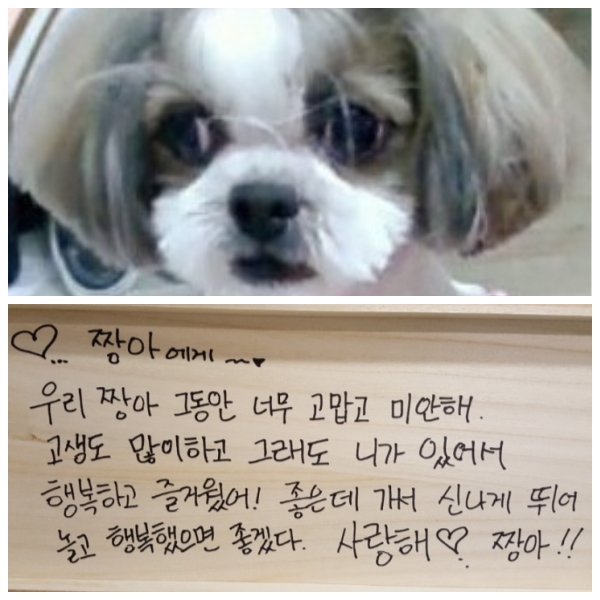 ♡... 짱아에게 ~♥
우리 짱아 그동안 너무 고맙고 미안해.
고생도 많이하고 그래도 니가 있어서
행복하고 즐거웠어! 좋은데 가서 신나게 뛰어
놀고 행복했으면 좋겠다. 사랑해♡. 짱아!!